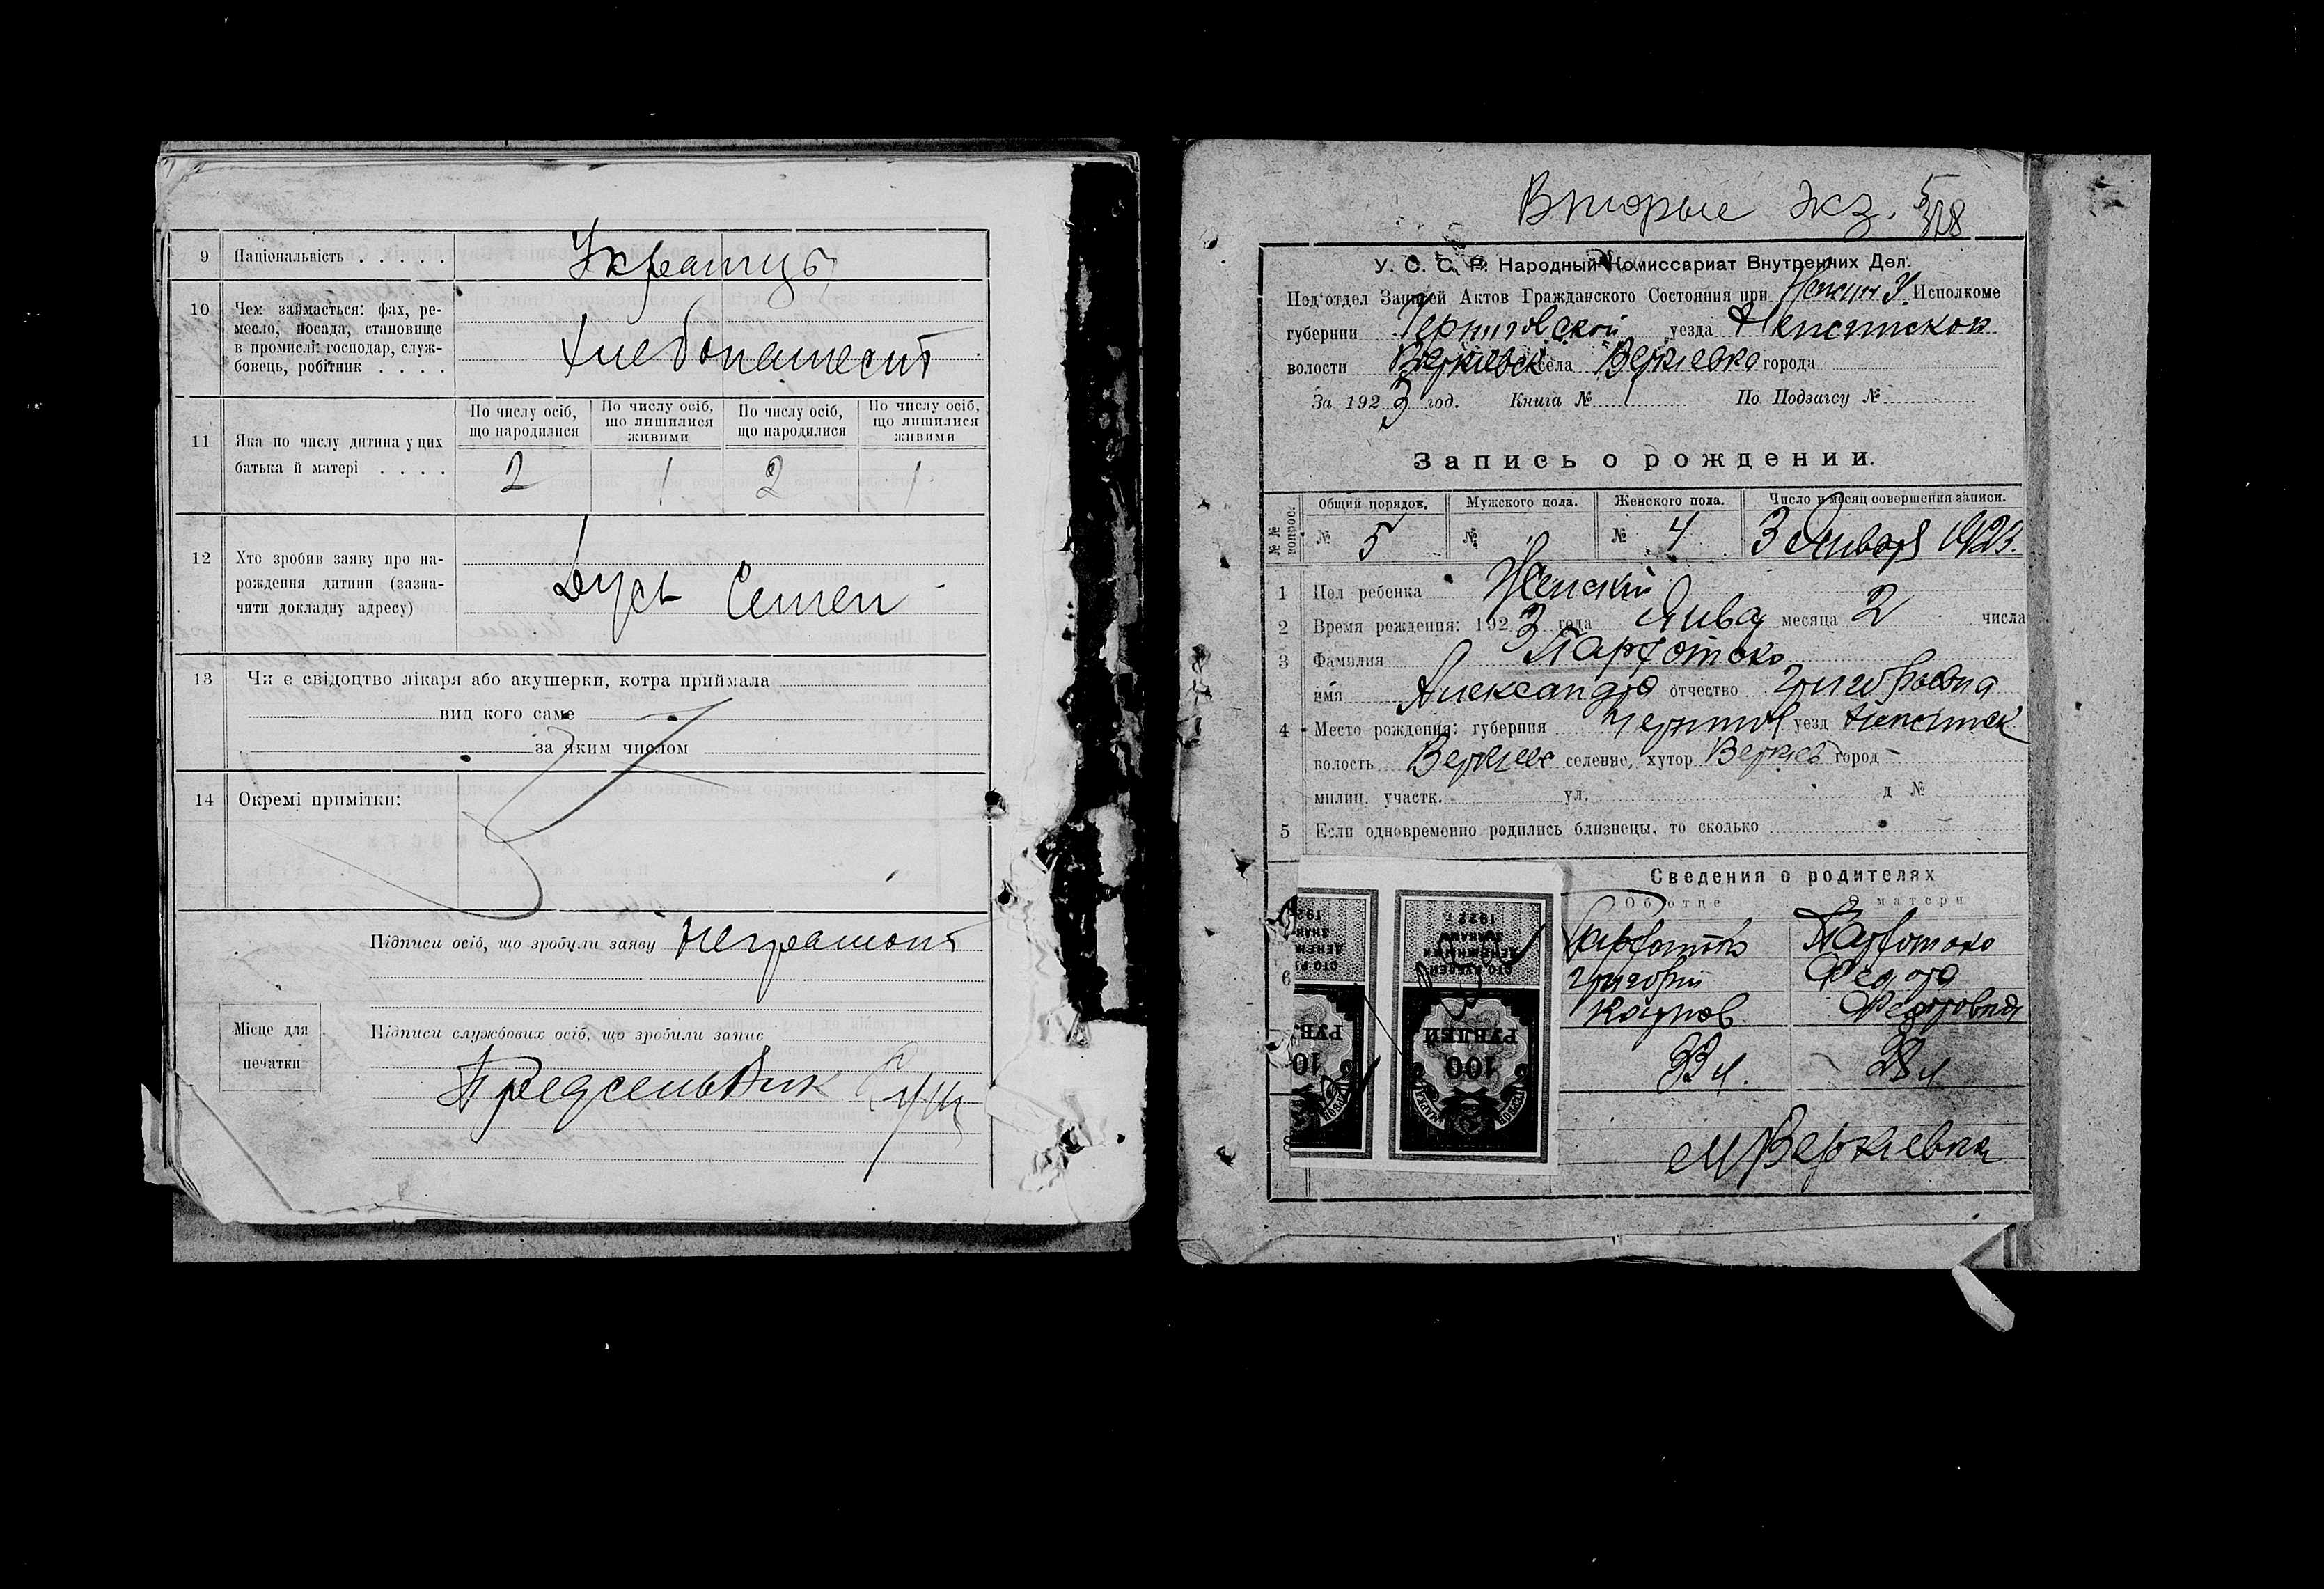 9 Національність . . . . Украинцы
10 Чем займається: фах, ре-
месло, посада, становище
в промислі: господар, служ-
бовець, робітник . . . .
Хлебопашест
11 Яка по числу дитина у цих
батька й матері . . . .
По числу осіб, що народилися
По числу осіб, що лишилися живими
По числу осіб, що народилися
По числу осіб, що лишилися живими
2 1 2 1
12 Хто зробив заяву про на-
рождення дитини (зазна-
чити докладну адресу)
Дусь Семен
13 Чи є свідоцтво лікаря або акушерки, котра приймала
вид кого саме
за яким числом
14 Окремі примітки:
Підписи осіб, що зробули заяву Неграмотн
Місце для
печатки
Підписи службових осіб, що зробили запис
Предсельвик
Вторые экз.
У. С. С. Р. Народный Комиссариат Внутренних Дел.
Под'отдел Записей Актов Гражданского Состояния при Нежин У. Исполкоме
губернии Черниговской уезда Неженской
волости Веркиевск села Веркиевка города
За 1923 год. Книга № По Подзагсу №
Запись о рождении.
№№ вопрос.
Общий порядок. Мужского пола. Женского пола. Число и месяц совершения записи.
№ 5 № № 4 3 Января 1923.
1 Пол ребенка Женский
2 Время рождения: 1923 года Январ месяца 2 числа
3 Фамилия
имя Александра отчество Григорьевна
4 Место рождения: губерния Чернигов уезд Неженск
волость Веркиевс селение, хутор Веркиев город -
милиц. участк. ул. д №
5 Если одновременно родились близнецы, то сколько
Сведения о родителях
Об отце О матери
6
Григорий
Карпов Федоровна
33 л. 28 л
8
м Веркиевка
1922 г.
СТО РУБЛЕЙ
100
РУБЛЕЙ